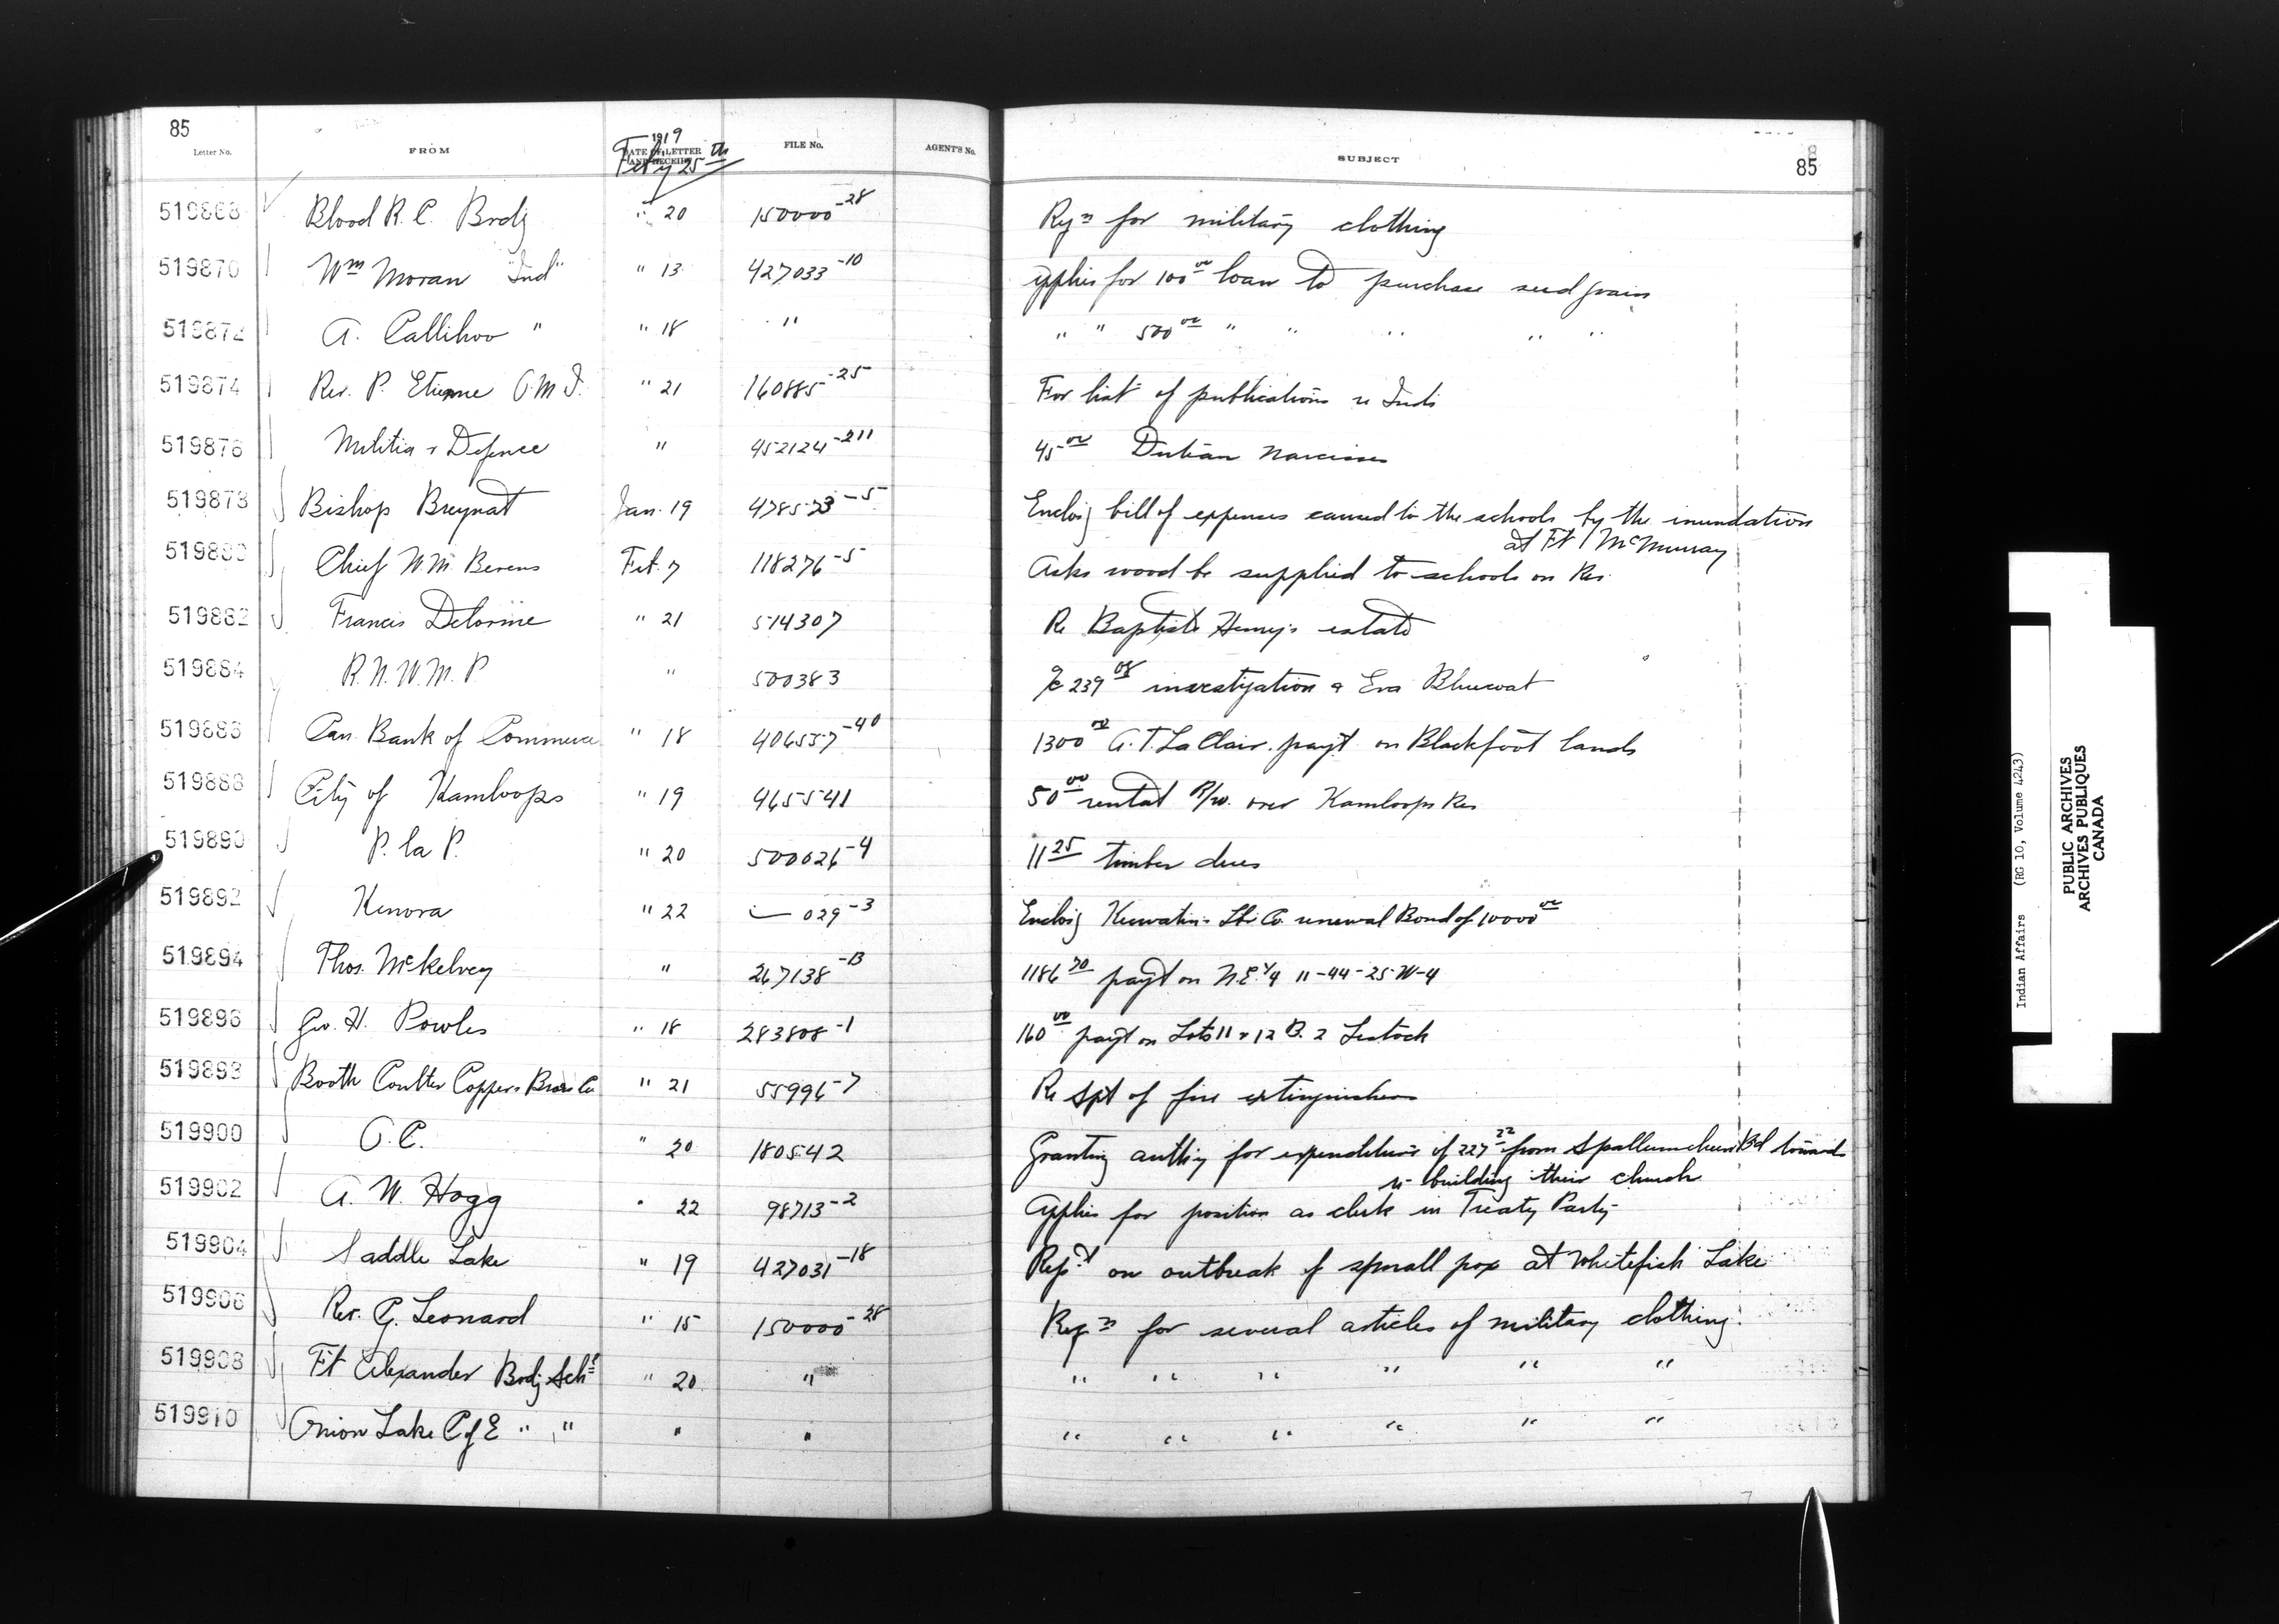 85
Letter No. FROM 1919 DATE OF LETTER AND RECEIPT Feby 25th FILE No. AGENT'S No. SUBJECT 85
519868 Blood R. C. Brdg " 20 150000-28 Reqn for military clothing
519870 Wm Moran "Ind" " 13 427033-10 Applies for 100 00 loan to purchase seed grain
519872 A. Callihoo " " 18 " " " 500 00 " " " " "
519874 Rev. P. Etienne O.M.I. " 21 160885-25 For list of publications re Inds
519876 Militia & Defence " 452124-211 45 00 Narcisse
519878 Bishop Breynat Jan. 19 478573-5 Enclos'g bill of expenses caused to the schools by the inundation
at Ft McMurray
519880 Chief W.M. Berens Feb. 7 118276-5 Asks wood be supplied to schools on Res.
519882 Francis Delorme " 21 514307 Re Baptiste Henry's estate
519884 R. N. W. M. P " 500383 a/c 239 08 investigation Eva Bluecoat
519886 Can. Bank of Commerce " 18 406557-40 1300 00 A. T. La Clair. payt on Blackfoot lands
519888 City of Kamloops " 19 465541 50 00 rental R/w. over Kamloops Res
519890 P. la P. " 20 500026-4 11 25 timber dues
519892 Kenora " 22 029-3 Enclos'g Keewatin Lbr Co. renewal Bond of 10000 00
519894 Thos. McKelvey " 267138-13 1186 70 payt on N.E. 1/4 11-44-25-W-4
519896 Geo. H. Powles " 18 283808-1 160 00 payt on Lots 11 & 12 B. 2 Lestock
519898 Booth Coulter Copper & Brass Co " 21 55996-7 Re spt of fire extinguishers
519900 O. C. " 20 180542 Granting authy for expenditure of 227 22 from Spallumcheen Bd towards
re-building their church
519902 A. W. Hogg " 22 98713-2 Applies for position as clerk in Treaty Party
519904 Saddle Lake " 19 427031-18 Rept on outbreak of small pox at Whitefish Lake
519906 Rev. G. Leonard " 15 150000-28 Reqn for several articles of military clothing.
519908 Ft Alexander Brdg Schl " 20 " " " " " " "
519910 Onion Lake C of E " " " " " " " " " "
Indian Affairs (RG 10, Volume 4243)
PUBLIC ARCHIVES
ARCHIVES PUBLIQUES
CANADA